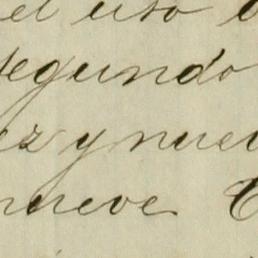 el uso
segundo
ez y nue
nueve.